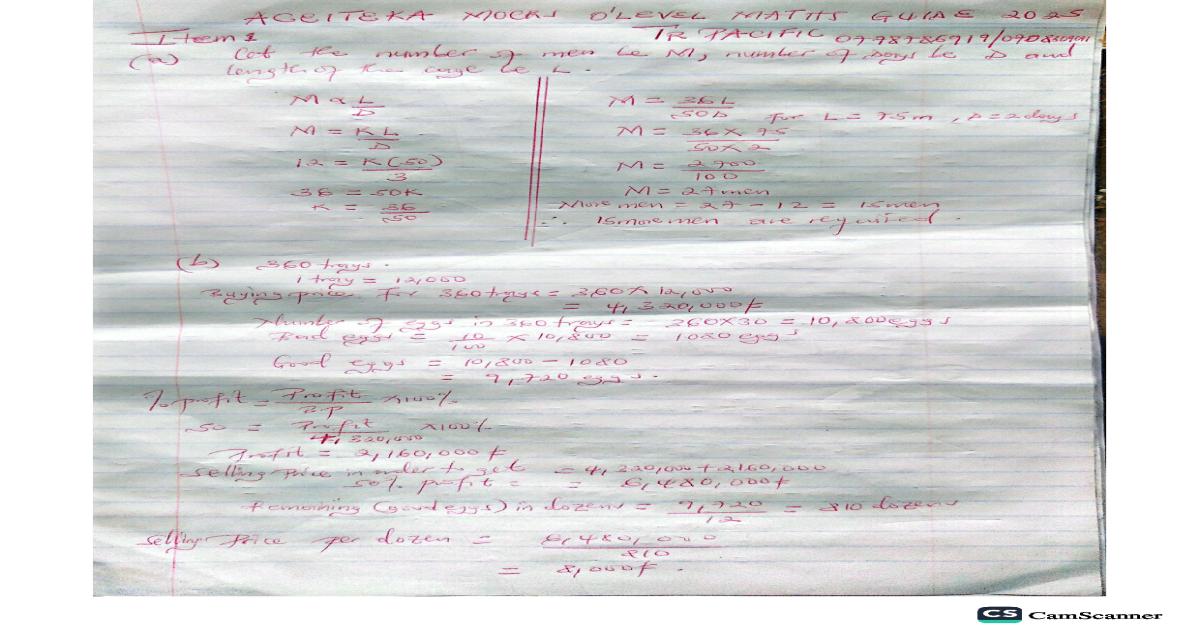 ACEITEKA MOCKS O'LEVEL MATHS GUIDE 2025
Item 1
TR PACIFIC
(a) Let the number of men be M, number of Days be D and
length of the cage be L.
M ∝ L/D
M = KL/D
12 = K(50)/3
36 = 50K
K = 36/50
M = 36L/50D
for L = 75m, D = 2 days
M = 36 X 75/50 X 2
M = 2700/100
M = 27 men
More men = 27 - 12 = 15men
∴ 15 more men are required.
(b) 360 trays.
1 tray = 12,000
Buying price for 360 trays = 360 X 12,000
= 4,320,000F
Number of eggs in 360 trays = 360X30 = 10,800 eggs
Bad eggs = 10/100 X 10,800 = 1080 eggs
Good eggs = 10,800 - 1080
= 9,720 eggs.
% profit = Profit/B.P X100%
50 = Profit/4,320,000 X100%
Profit = 2,160,000F
Selling Price in order to get = 4,320,000 + 2,160,000
50% profit = = 6,480,000F
Remaining (good eggs) in dozens = 9,720/12 = 810 dozens
Selling Price per dozen = 6,480,000/810
= 8,000F.
CS CamScanner